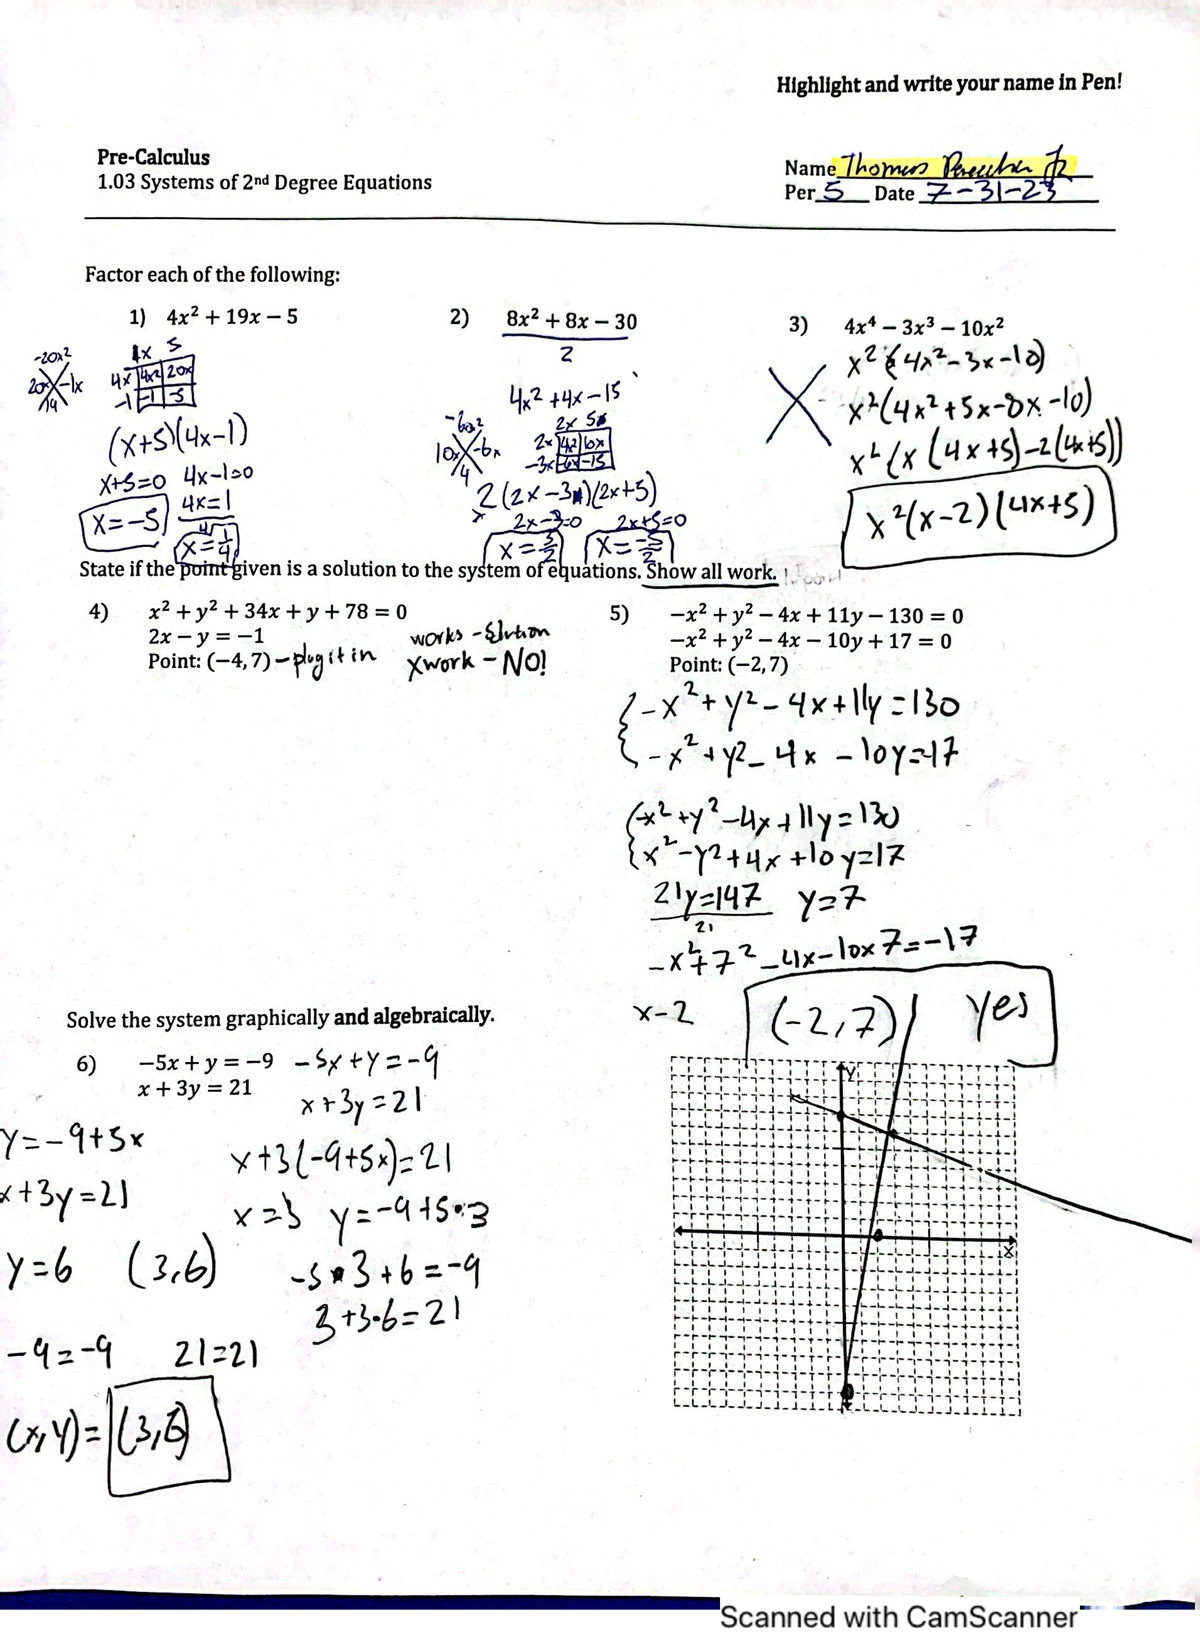 Highlight and write your name in Pen!
Pre-Calculus
1.03 Systems of 2nd Degree Equations
Name Thomas
Per 5 Date 7-31-23
Factor each of the following:
1) 4x² + 19x − 5
-20x²
20x -1x
19
4x² 20x
-1 -5
(x+5)(4x-1)
x+5=0 4x-1=0
4x=1
x=-5
x=1/4
2) 8x² + 8x − 30
2
4x²+4x-15
-60x²
10x -6x
4
2x 5
2x 4x² 10x
-3 -6x -15
2(2x-3)(2x+5)
2x-3=0 2x+5=0
x=3/2 x=-5/2
3) 4x⁴ − 3x³ − 10x²
x²(4x²-3x-10)
x²(4x²+5x-8x-10)
x²(x(4x+5)-2(4x+5))
x²(x-2)(4x+5)
State if the point given is a solution to the system of equations. Show all work.
4) x² + y² + 34x + y + 78 = 0
2x − y = −1
Point: (−4, 7) - plug it in
works - Solution
Xwork - NO!
5) −x² + y² − 4x + 11y − 130 = 0
−x² + y² − 4x − 10y + 17 = 0
Point: (−2, 7)
-x²+y²-4x+11y=130
-x²+y²-4x-10y=-17
-x²+y²-4x+11y=130
x²-y²+4x+10y=17
21y=147 y=7
21
-x²+7²-4x-10x7=-17
x-2
(-2,7) yes
Solve the system graphically and algebraically.
6) −5x + y = −9
x + 3y = 21
-5x+y=-9
x+3y=21
y=-9+5x
x+3y=21
x+3(-9+5x)=21
x=3 y=-9+5•3
y=6 (3,6)
-5•3+6=-9
3+3•6=21
-9=-9 21=21
(x,y)=(3,6)
Y
X
Scanned with CamScanner